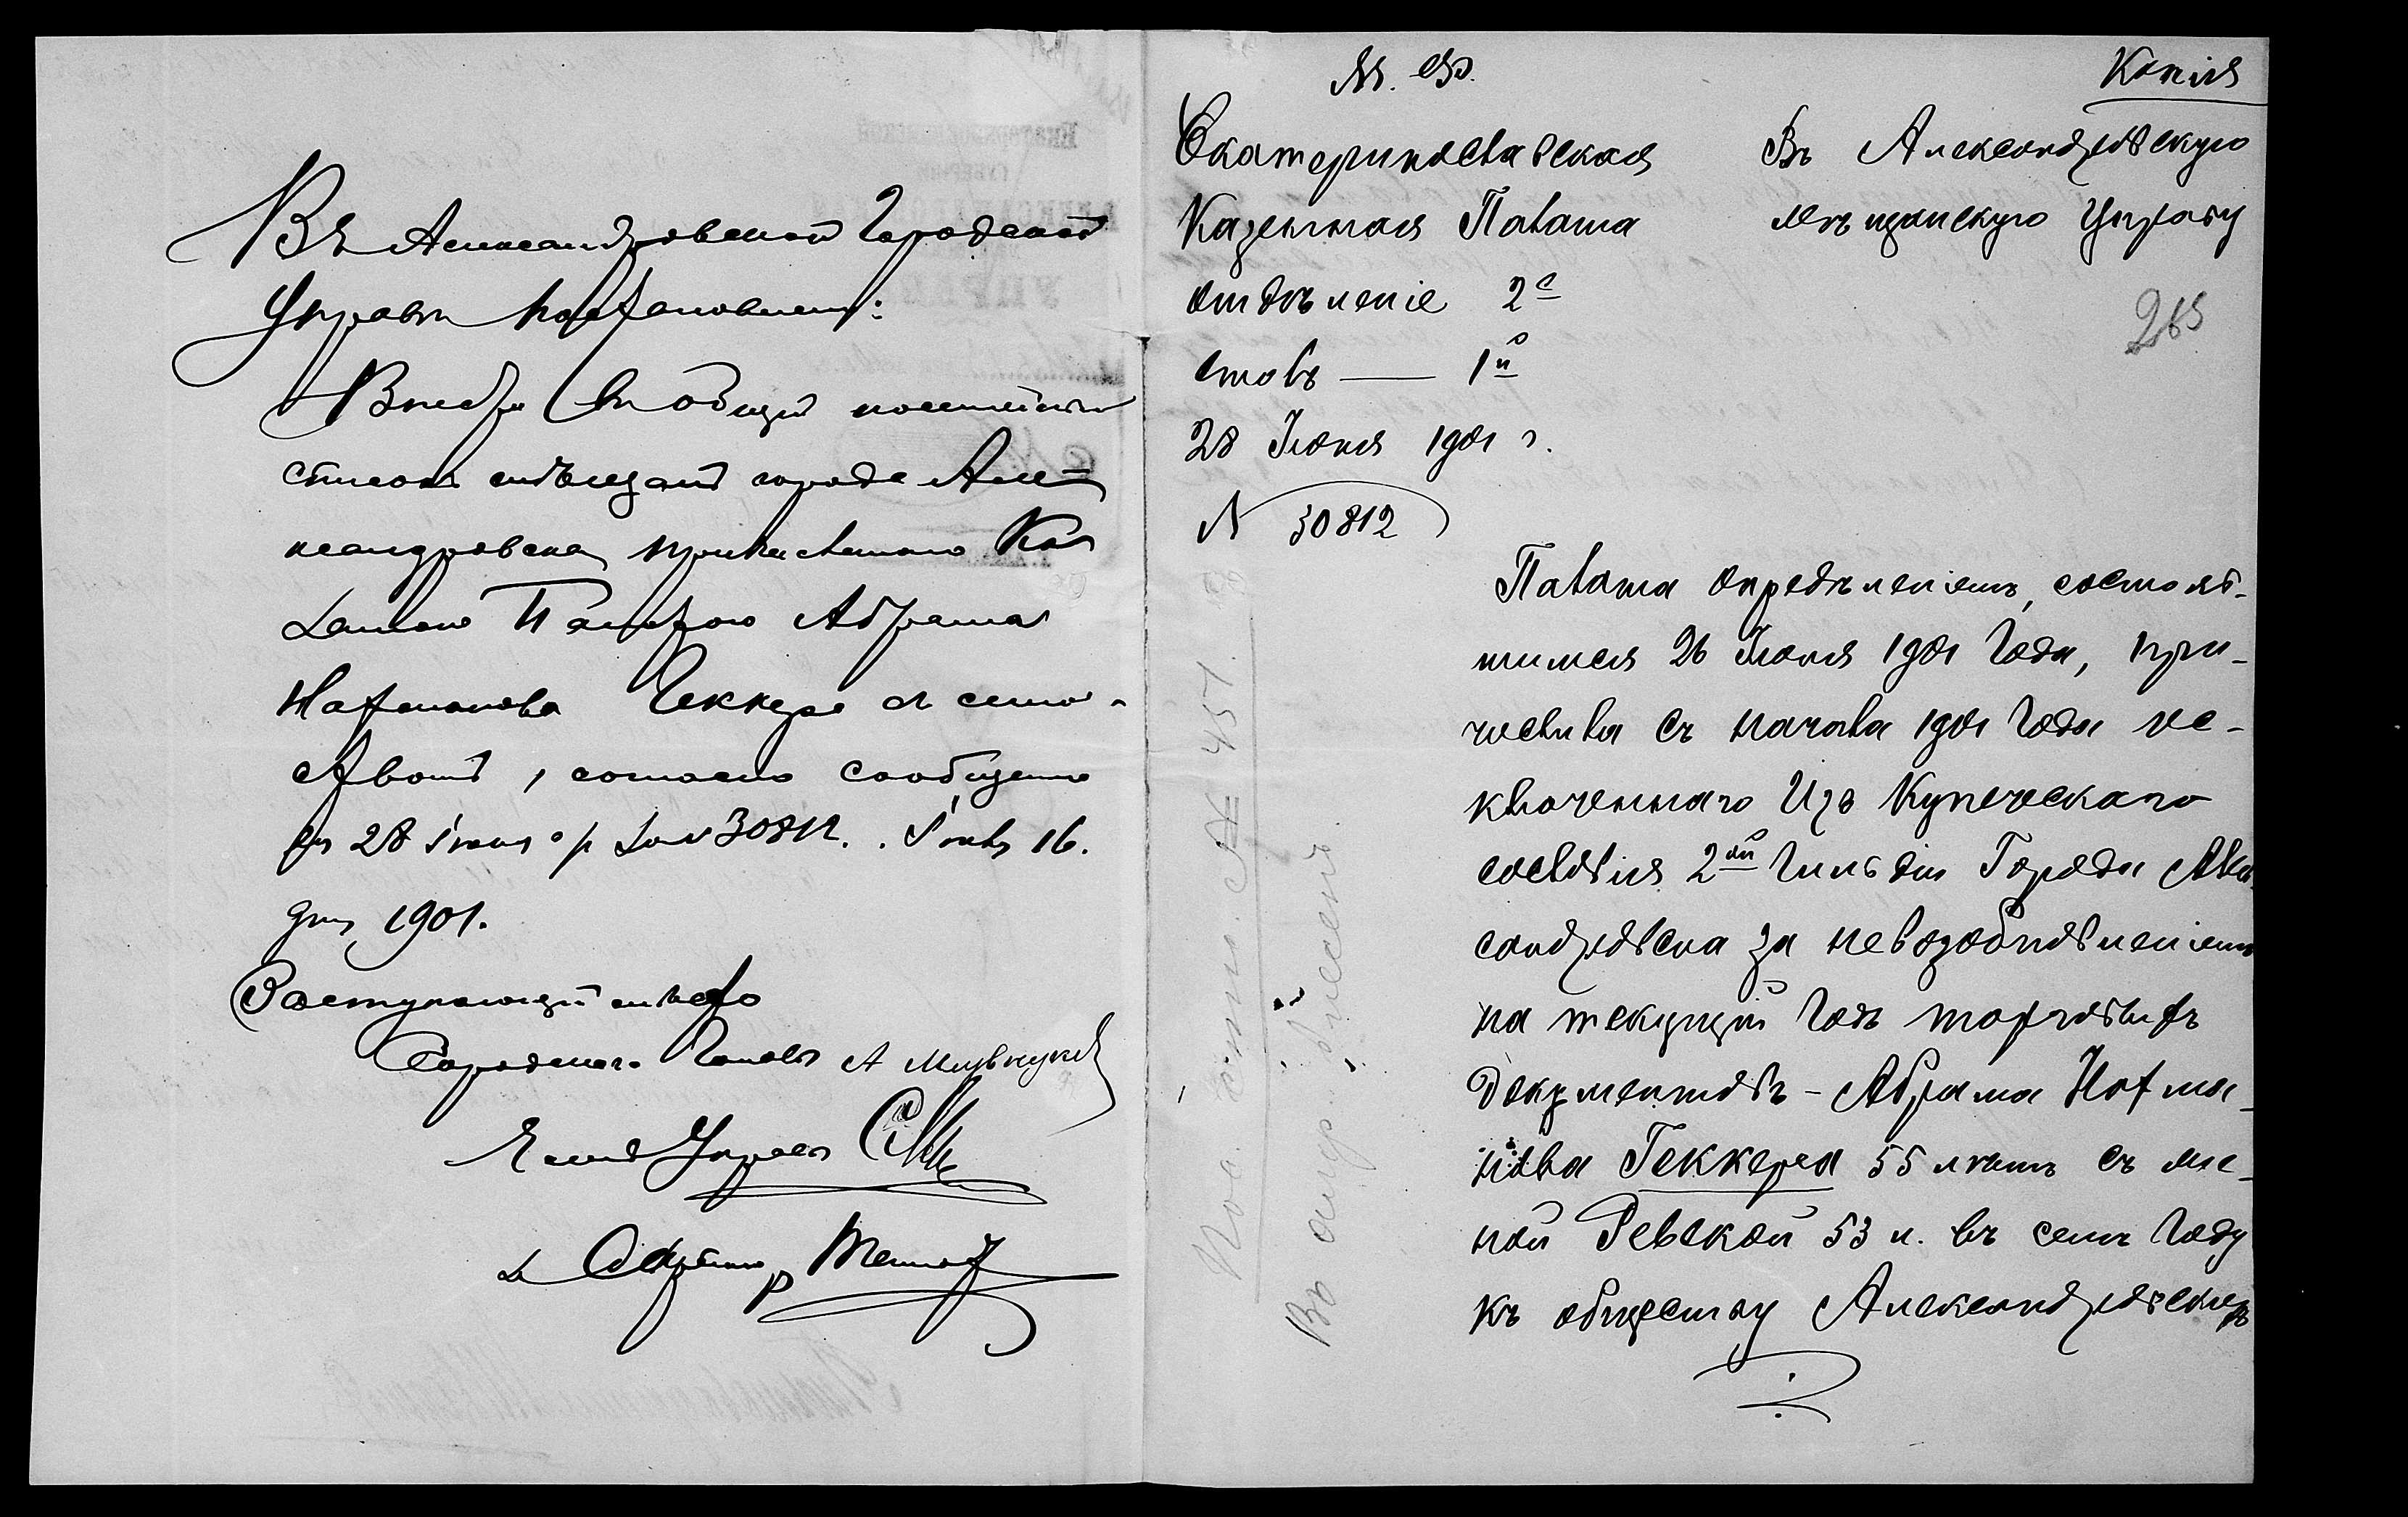 Въ Александровской Городской
Управѣ постановлено:
Внести въ общій посемейный
списокъ мѣщанъ города Алек-
сандровска, причисленнаго Ка-
зенною Палатою Абрама
Нотманова Геккера съ семей-
ствомъ, согласно сообщенію
отъ 28 Іюня с/г за № 30812. Іюль 16.
дня 1901.
Заступающій мѣсто
Городского Головы А
Членъ Управы
Секретарь
М. Ф.
Копія
Екатеринославская
Казенная Палата
отдѣленіе 2е
столъ — 1й
28 Іюня 1901 г.
N 30812
Въ Александровскую
мѣщанскую Управу
265
Палата опредѣленіемъ, состояв-
шимся 26 Іюня 1901 года, при-
числила съ начала 1901 года ис-
ключеннаго изъ купеческаго
сословія 2ой гильдіи города Алек
сандровска за невозобновленіемъ
на текущій годъ торговыхъ
документовъ - Абрама Нотма-
нова Геккера 55 лѣтъ съ же-
ной Ревекой 53 л. въ семъ году
къ обществу Александровскихъ
Пос. N 457
Въ внесенъ